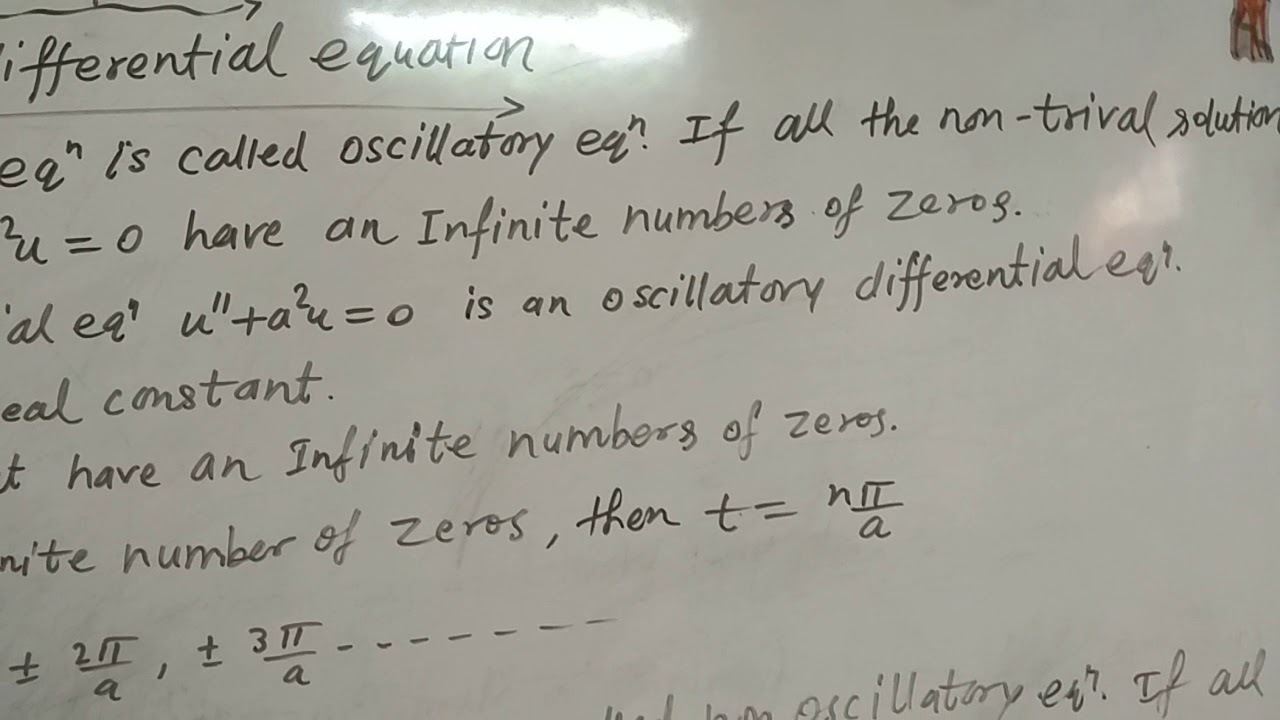 ifferential equation
eqⁿ is called oscillatory eqⁿ. If all the non-trival solution
²u = 0 have an Infinite numbers of zeros.
ial eqⁿ u'' + a²u = 0 is an oscillatory differential eqⁿ.
eal constant.
t have an Infinite numbers of zeros.
nite number of zeros, then t = nπ/a
± 2π/a, ± 3π/a - - - - - - -
oscillatory eqⁿ. If all